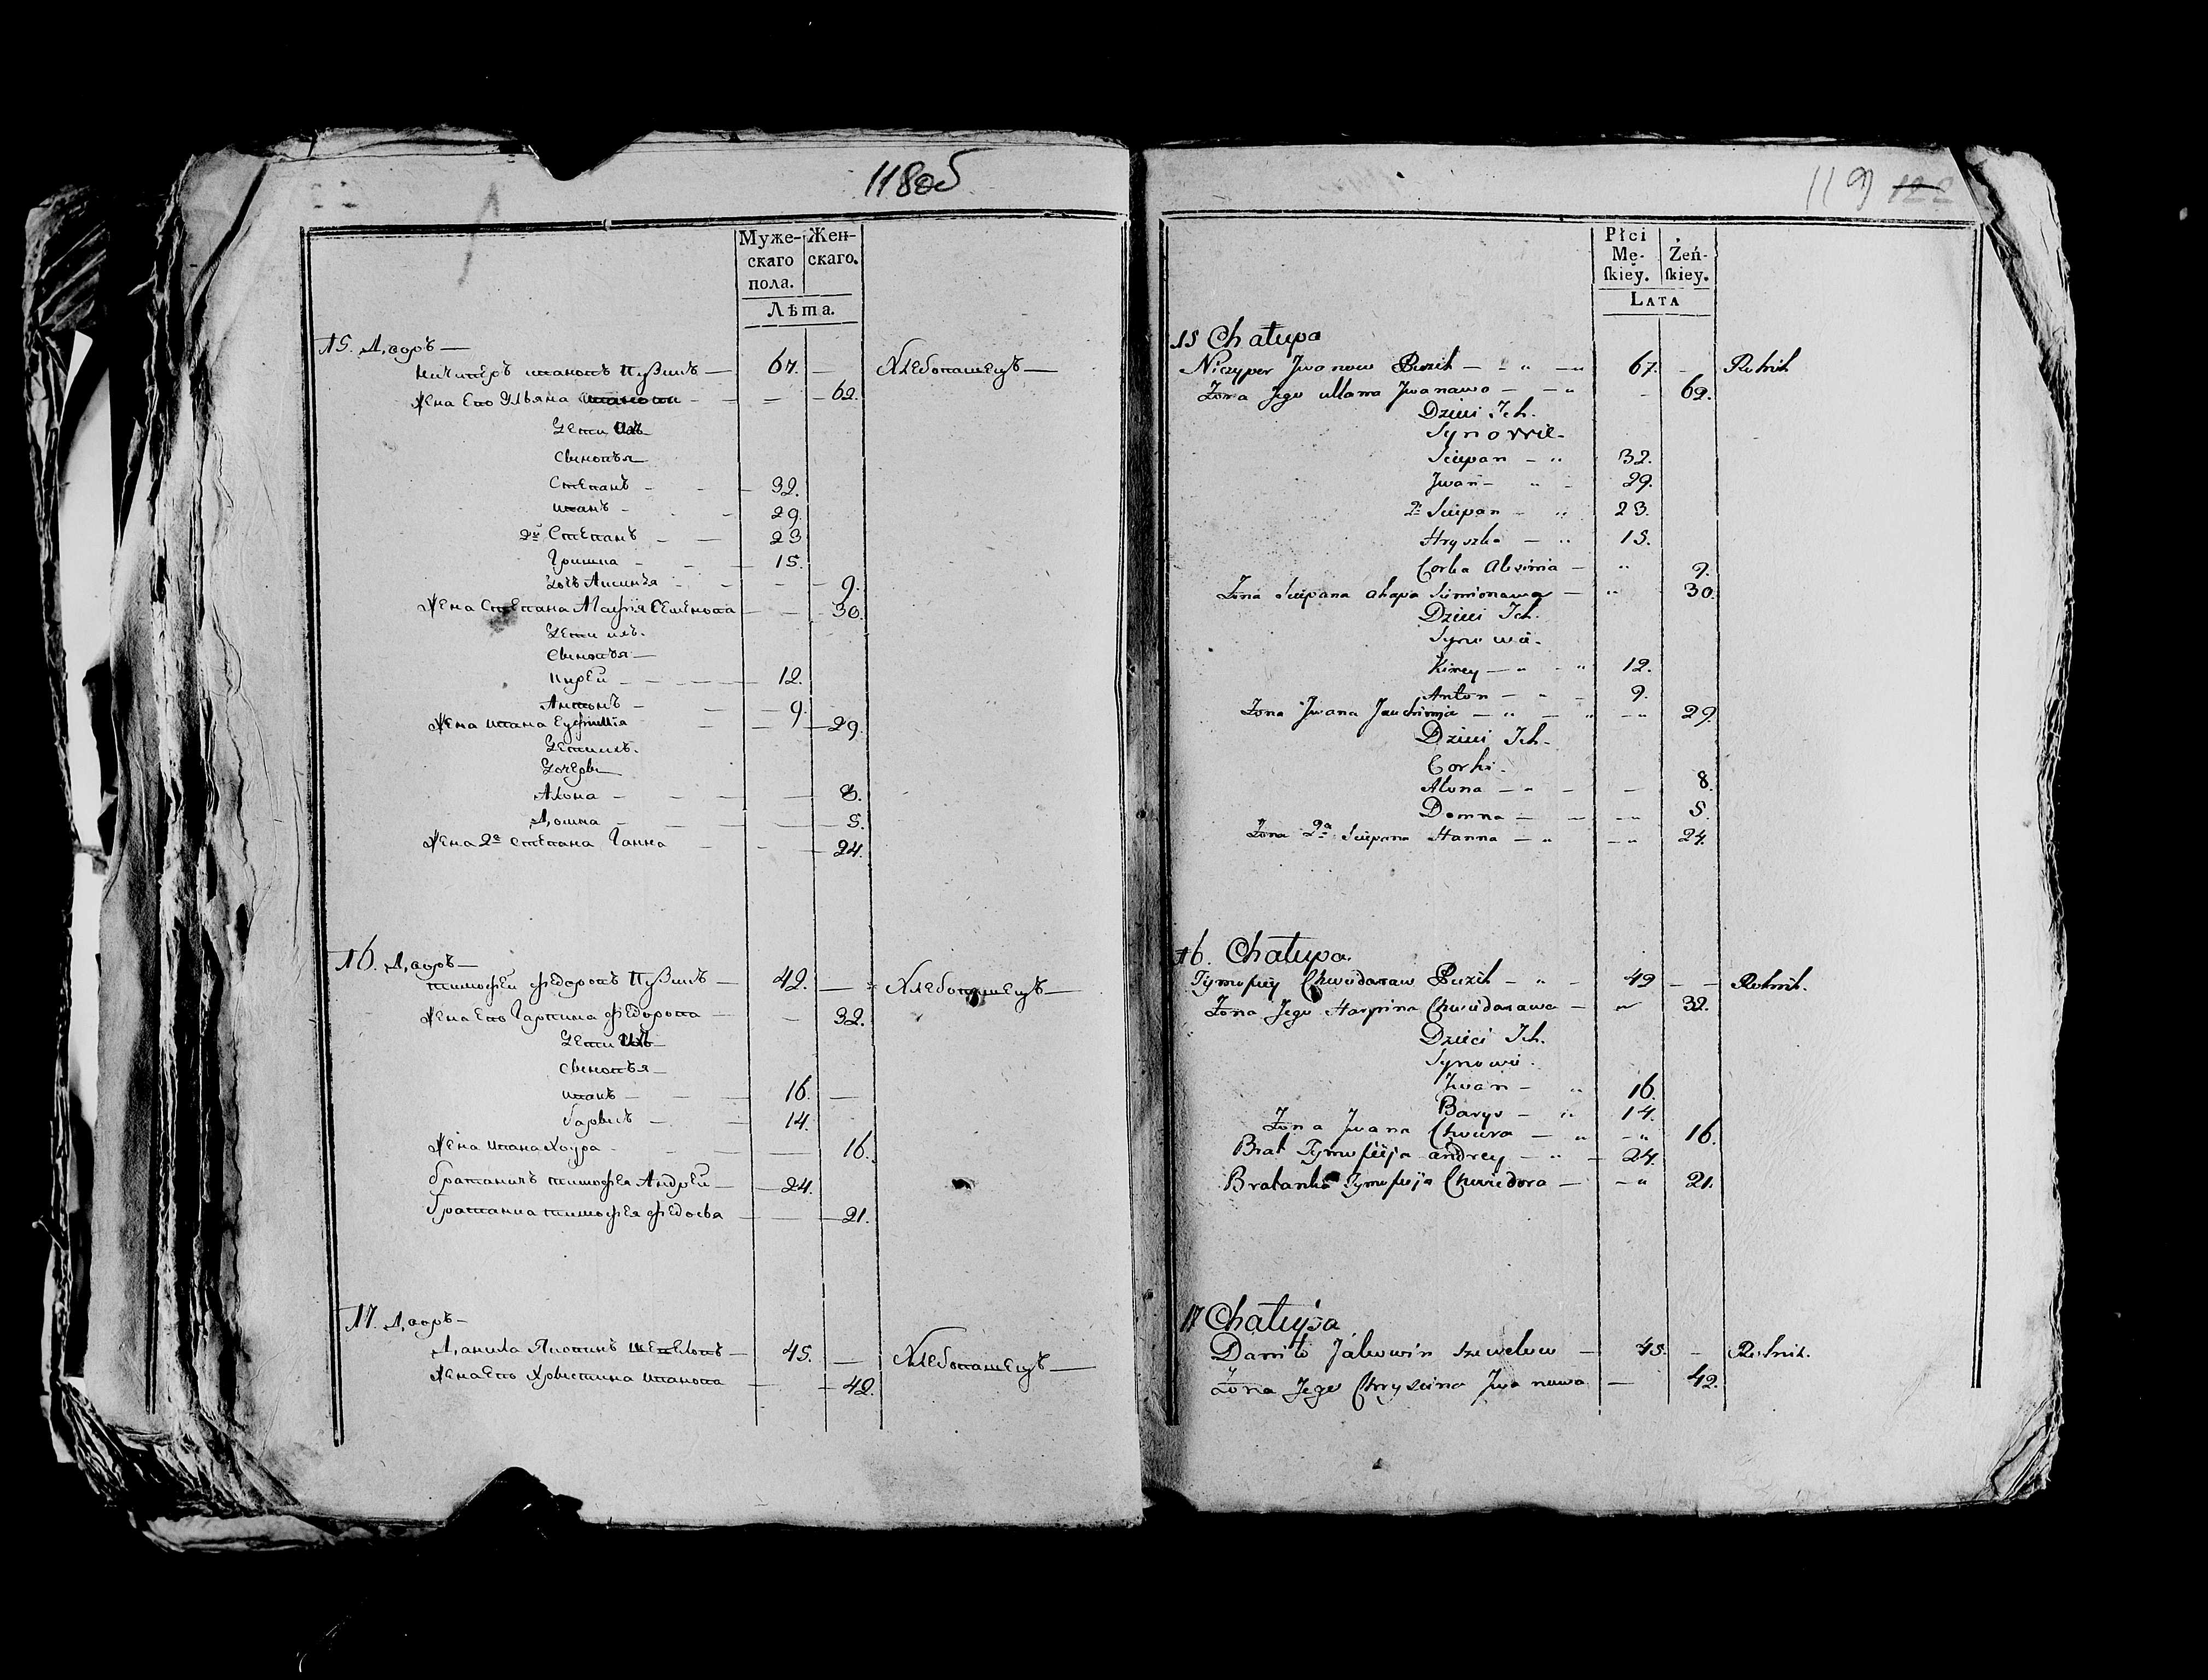 118об
Муже-
скаго
пола.
Жен-
скаго.
Лѣта.
15. Дворъ —
Ничипоръ Ивановъ — 67. — Хлебопашецъ —
Жена Его Ульяна — 62.
Дети Ихъ
Сыновья
Степанъ — 32.
Иванъ — 29.
2й Степанъ — 23
Гришка — 15.
Дочь — 9.
Жена Степана Семенова — 30.
Дети ихъ.
Сыновья —
Кирей — 12.
Антонъ — 9.
Жена Ивана — 29.
Дети ихъ.
Дочери
Алона — 8.
Домна — 5.
Жена 2го Степана Ганна — 24.
16. Дворъ —
Тимофей Федоровъ — 42. — Хлебопашецъ —
Жена Его Гарпина Федорова — 32.
Дети Ихъ
Сыновья —
Иванъ — 16. —
Борисъ — 14.
Жена Ивана — 16.
Братаничъ Тимофея Андрей — 24.
Братанка Тимофея — 21.
17. Дворъ —
Данила — 45. — Хлебопашецъ —
Жена Его Христина Иванова — 42.
119 122
Płci
Mę-
ſkiéy.
Żeń-
ſkiey.
Lata
15 Chałupa
Niczypor Jwanow — 67. — Rolnik
Żona Jego Ullana Jwanawa — 62.
Dzieci Ich.
Synowie.
Sciepan — 32.
Jwan — 29.
2i Sciepan — 23.
Hryszka — 15.
Corka — 9.
Żona Sciepana Ahapa Simionawa — 30.
Dzieci Ich.
Synowie.
Kirey — 12.
Anton — 9.
Żona Jwana — 29.
Dzieci Ich.
Corki.
Alona — 8.
Domna — 5.
Żona 2a Sciepana Hanna — 24.
16. Chałupa.
Tymofiey Chwiedaraw — 42 — — Rolnik.
Żona Jego Harpina Chwiedarawa — 32.
Dzieci Ich.
Synowie.
Jwan — 16.
Barys — 14.
Żona Jwana — 16.
Brat Tymofieja Andrey — 24.
Bratanka Tymofieja Chwiedora — 21.
17 Chałupa
Daniło — 45. — Rolnik.
Żona Jego Chryscina Jwanawa — 42.